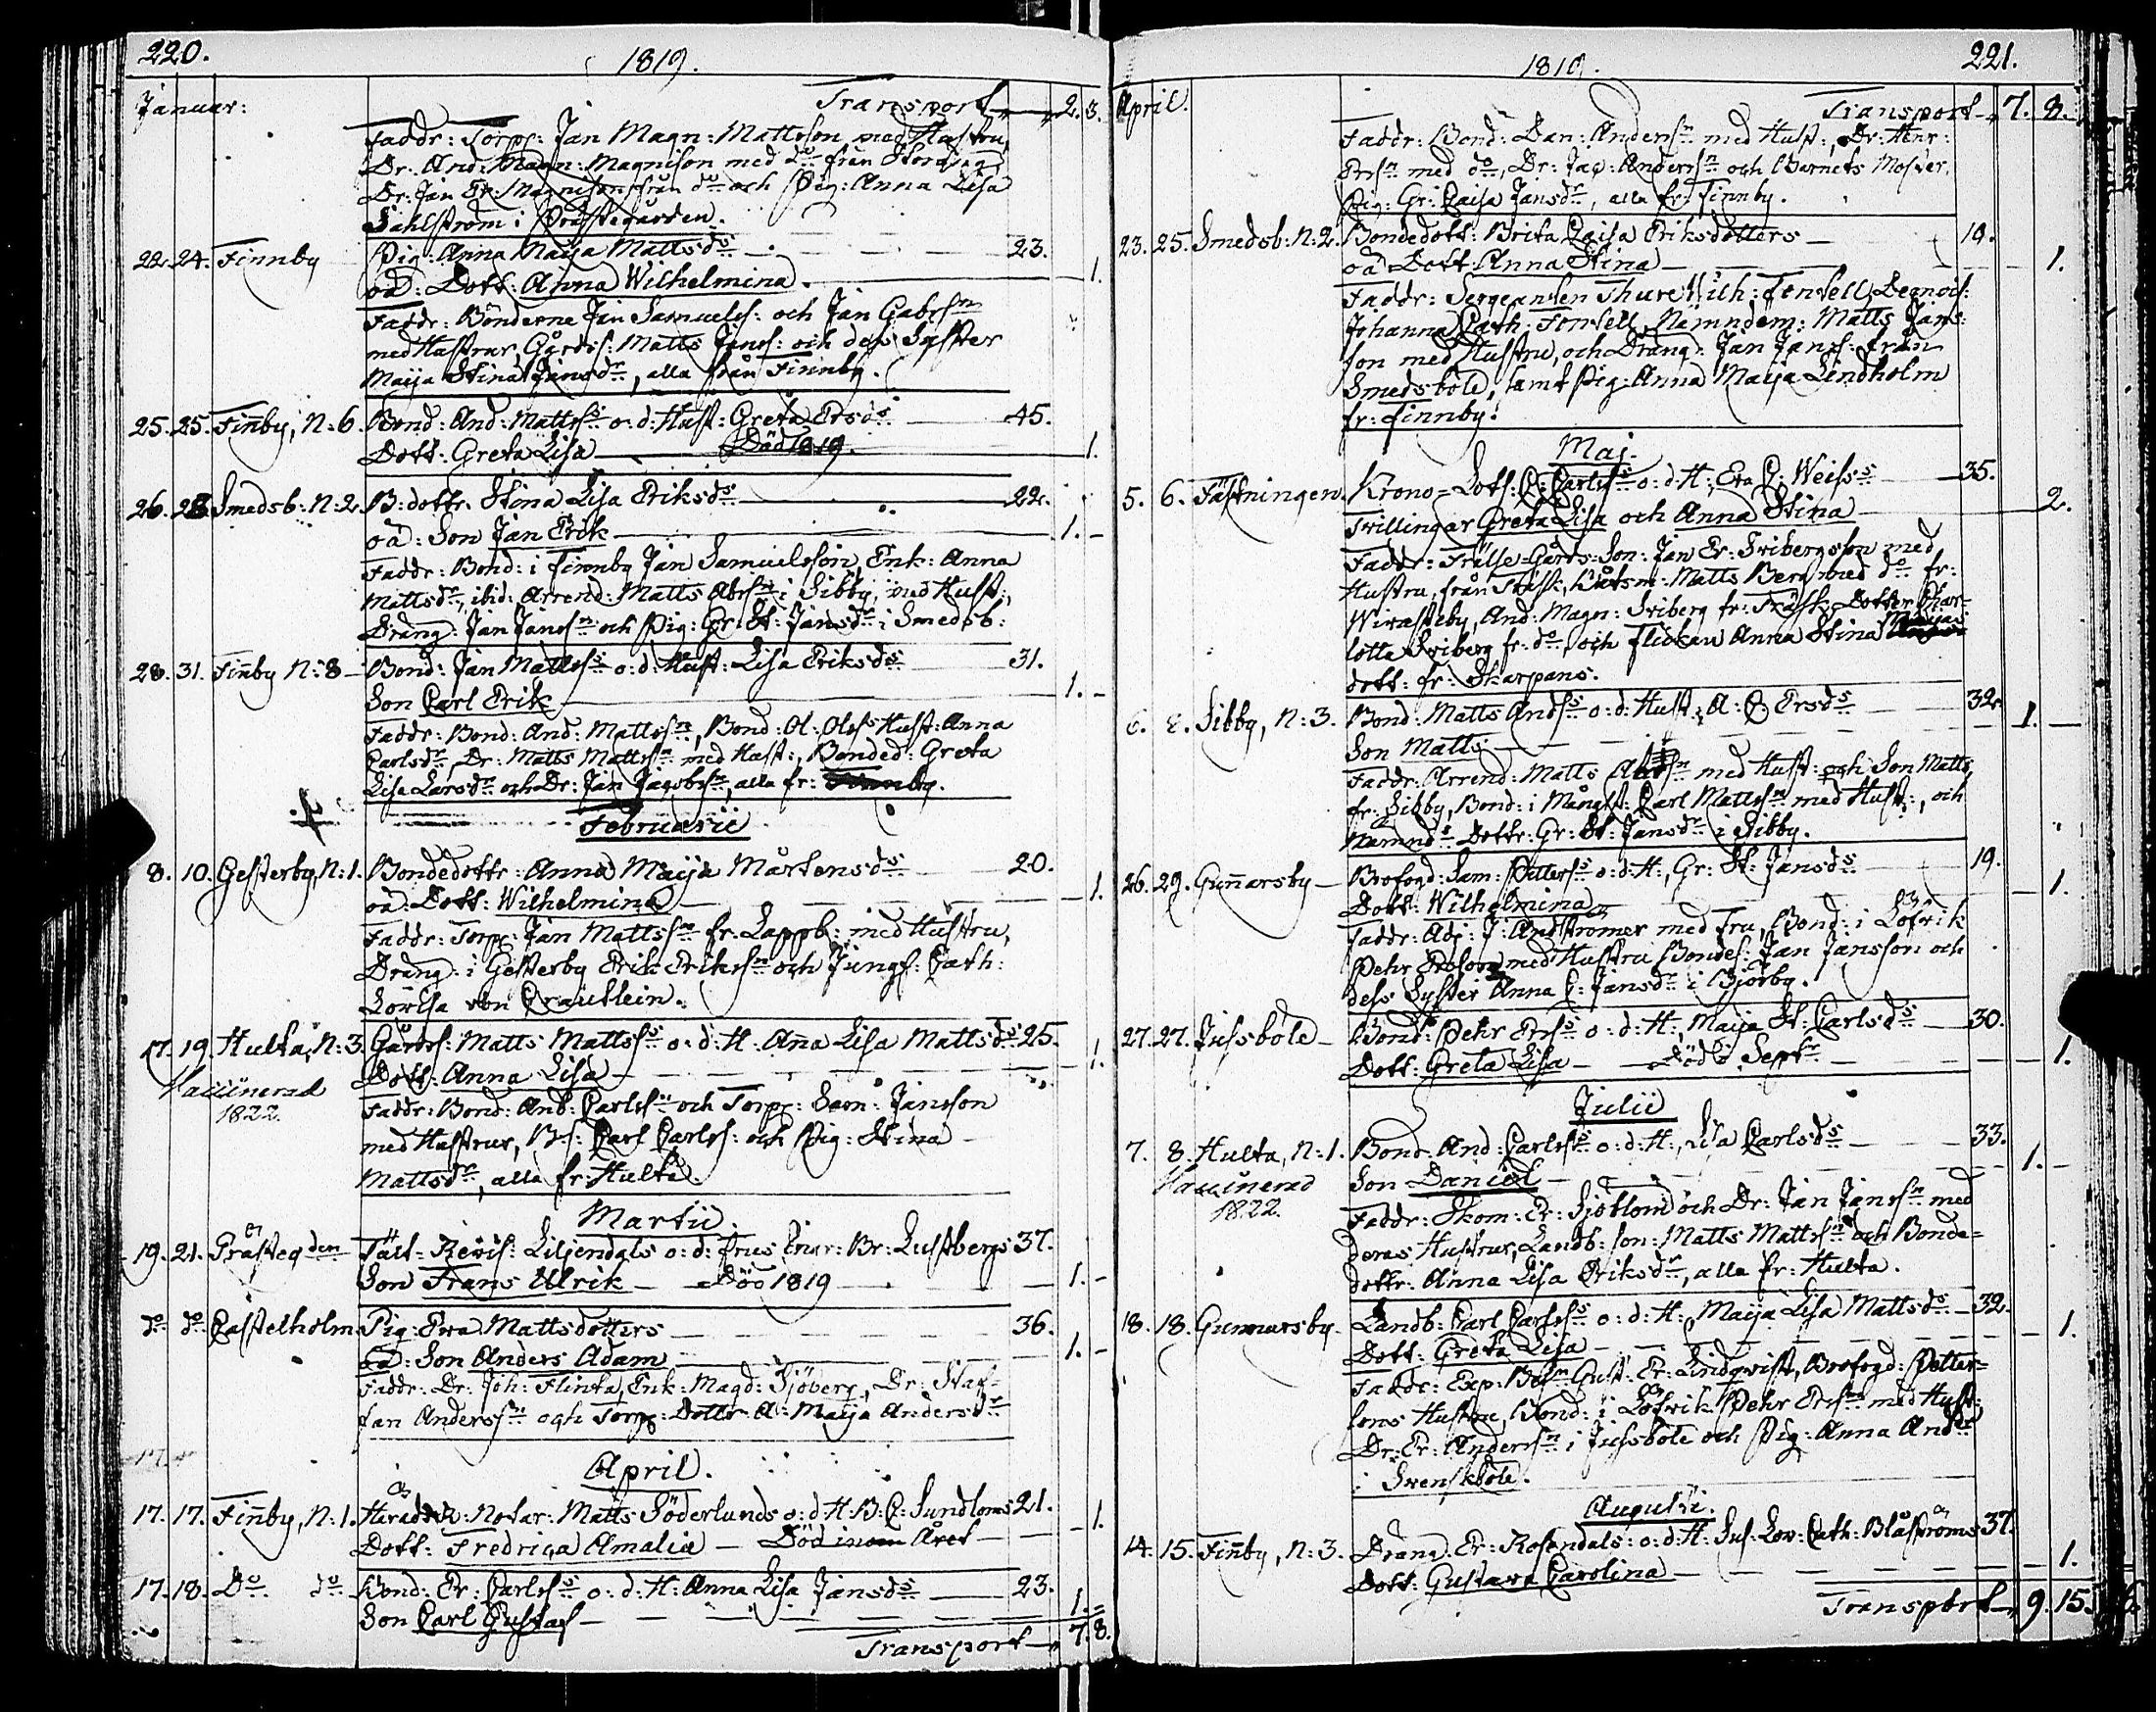 220.
1819.
Januar: Transport 2. 3.
Faddr: Torp: Jan Magn: Mattsson med Hustru,
Dr: And: Magn: Magnison med do från
Dr: Jan Er: Magnison från do och Pig: Anna Lisa
Dahlström i Prästegården.
22. 24. Finnby Pig: Anna Maija Mattsds 23.
oä: Dott: Anna Wilhelmina. 1.
Faddr: Bönderne Jan Samuelss: och Jan Gabrsn
med Hustrur, Gårds: Matts Janss: och dess Syster
Maija Stina Jansdr, alla från Finnby.
25. 25. Finby, N:6. Bond: And: Mattss o: d: Hust: Greta Ersds 45.
Dott: Greta Lisa Död 1819. 1.
26. 28. Smedsb: N:2. B: dottr. Stina Lisa Eriksds 22.
oä: Son Jan Erik 1. -
Faddr: Bond: i Finnby Jan Samuelsson, Enk: Anna
Mattsdr, ibid: Arrend: Matts Abrsn i Sibby, med Hust:,
Dräng: Jan Janssn och Pig: Gr: St: Jansdr i Smedsb:
28. 31. Finby N:8 Bond: Jan Mattss o: d: Hust: Lisa Eriksds 31.
Son Carl Erik 1. -
Faddr: Bond: And: Mattssn, Bond: Ol: Olss Hust: Anna
Carlsdr, Dr: Matts Mattssn med Hust:, Bonded: Greta
Lisa Larsdr och Dr: Jan Jacobssn, alla fr: Finnby.
Februarii
8. 10. Gesterby, N:1. Bondedottr: Anna Maija Mårtensds 20.
oä: Dott: Wilhelmina 1.
Faddr: Torp: Jan Mattssn fr: Lappb: med Hustru,
Dräng: i Gesterby Erik Erikssn och Jungf: Cath:
Lovisa von Creutlein.
17. 19. Hulta, N:3. Gårds: Matts Mattss o: d: H: Anna Lisa Mattsds 25.
Dott: Anna Lisa 1.
Vaccinerad
1822.
Faddr: Bond: And: Carlssn och Torp: Sam: Jansson
med Hustrur, B:s: Carl Carlss: och Pig: Stina
Mattsdr, alla fr: Hulta.
Martii.
19. 21. Prästegden Fält-Revis: Liljendals o: d: frus Br: Lustbergs 37.
Son Frans Ulrik Död 1819 1. -
do do Castelholm Pig: Eva Mattsdotters 36.
oä: Son Anders Adam 1. -
Faddr: Dr: Joh: Flinta, Enk: Magd: Sjöberg, Dr: Staf-
fan Anderssn och Torp: Dottr A: Maija Andersdr
April.
17. 17. Finby, N:1. Härads R: Notar: Matts Söderlunds o: d: H: B: C: Sundloms 21.
Dott: Fredrica Amalia Död inom året 1.
17. 18. Do do Bond: Er: Carlss o: d: H: Anna Lisa Jansds 23.
Son Carl Gustaf 1. -
Transport 7. 8.
221.
1819.
April. Transport 7. 8.
Faddr: Bond: Dan: Anderssn med Hust:, Dr: Henr:
Erssn med do, Dr: Jac: Anderssn och Barnets Moster,
Pig: Gr: Caisa Jansdr, alla fr: Finnby.
23. 25. Smedsb: N:2. Bondedott: Brita Caisa Eriksdotters 19.
oä Dott: Anna Stina 1.
Faddr: Sergeanten Thure Wilh: Fontell, Demois:
Johanna Cath: Fontell, Nämndem: Matts Jans-
son med Hustru, och Dräng: Jan Janss: från
Smedsböle, samt Pig: Anna Maija Lindholm
fr: Finnby.
Maj.
5. 6. Fästningen. Krono-Lots: C: Carlss o: d: H:, Eva C: Weiss 35.
Tvillingar Greta Lisa och Anna Stina 2.
Faddr: Frälse-Gårds-Son: Jan Er: Sribergsson med
Hustru, från Träsk, Båtsm: Matts Berg med do fr:
Wivasteby, And: Magn: Sriberg fr: Träsk, Dotter Char-
lotta Sriberg fr: do, och Flickan Anna Stina
dott: fr: Skarpans.
6. 8. Sibby, N:3. Bond: Matts Andss o: d: Hust:, A: C: Ersds 32.
Son Matts 1. -
Faddr: Arrend: Matts Abrsn med Hust: och Son Matts
fr: Sibby, Bond: i Mångst: Carl Mattssn med Hust:, och
Nämnds Dottr: Gr: St: Jansdr i Sibby.
26. 29. Gunnarsby Brofogd: Sam: Petterss o: d: H:, Gr: St: Jansds 19.
Dott: Wilhelmina 1.
Faddr: Adj: J: Andströmer med Fru, Bond: i Löfvik
Pehr Ersson med Hustru, Bondes: Jan Jansson och
dess Syster Anna C: Jansdr i Björby.
27. 27. Jussböle Bond: Pehr Erss o: d: H:, Maija St: Carlsds 30.
Dott: Greta Lisa Död i Septr 1.
Julii
7. 8. Hulta, N:1. Bond: And: Carlss o: d: H:, Lisa Carlsds 33.
Son Daniel 1. -
Vaccinerad
1822.
Faddr: Skom: Er: Sjöblom och Dr: Jan Janssn med
deras Hustrur, Landb: son: Matts Mattssn och Bonde-
dottr: Anna Lisa Eriksdr, alla fr: Hulta.
18. 18. Gunnarsby. Landb: Carl Carlss o: d: H:, Maija Lisa Mattsds 32.
Dott: Greta Lisa 1.
Faddr: Exp: Gust: Er: Lindqvist, Brofogd: Petter-
sons Hustru, Bond: i Löfvik Pehr Erssn med Hust:
Dr: Er: Anderssn i Jussböle och Pig: Anna Andsdr
i Svenskböle.
Augusti.
14. 15. Finby, N:3. Dräng: Er: Rosendals o: d: H: Sus: Lov: Cath: Blåströms 37.
Dott: Gustava Carolina 1.
Transport 9. 15.